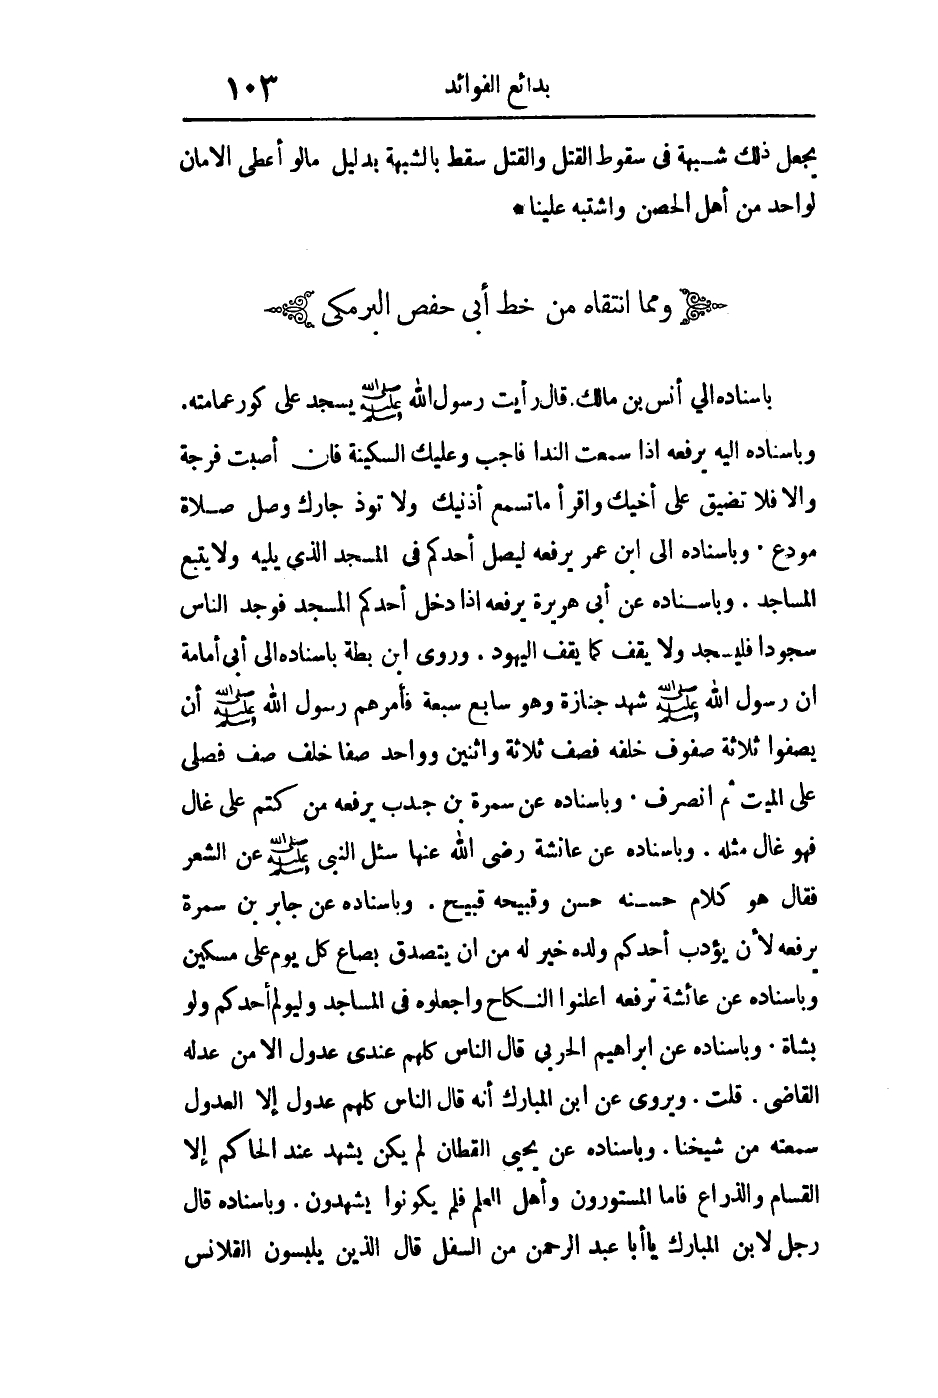 بدائع الفوائد ١٠٣
يجعل ذلك شبهة فى سقوط القتل والقتل سقط بالشبهة بدليل مالو أعطى الامان
لواحد من أهل الحصن واشتبه علينا *
ومما انتقاه من خط أبى حفص البرمكى
باسناده الي أنس بن مالك. قال رأيت رسول الله ﷺ يسجد على كور عمامته.
وباسناده اليه يرفعه اذا سمعت الندا فاجب وعليك السكينة فان أصبت فرجة
والا فلا تضيق على أخيك واقرأ ما تسمع أذنيك ولا توذ جارك وصل صلاة
مودع . وباسناده الى ابن عمر يرفعه ليصل أحدكم فى المسجد الذي يليه ولا يتبع
المساجد . وباسناده عن أبى هريرة يرفعه اذا دخل أحدكم المسجد فوجد الناس
سجودا فليسجد ولا يقف كما يقف اليهود . وروى ابن بطة باسناده الى أبى أمامة
ان رسول الله ﷺ شهد جنازة وهو سابع سبعة فأمرهم رسول الله ﷺ أن
يصفوا ثلاثة صفوف خلفه فصف ثلاثة واثنين وواحد صفا خلف صف فصلى
على الميت ثم انصرف . وباسناده عن سمرة بن جندب يرفعه من كتم على غال
فهو غال مثله . وباسناده عن عائشة رضى الله عنها سئل النبى ﷺ عن الشعر
فقال هو كلام حسنه حسن وقبيحه قبيح . وباسناده عن جابر بن سمرة
يرفعه لأن يؤدب أحدكم ولده خير له من ان يتصدق بصاع كل يوم على مسكين
وباسناده عن عائشة ترفعه اعلنوا النكاح واجعلوه فى المساجد وليولم أحدكم ولو
بشاة . وباسناده عن ابراهيم الحربي قال الناس كلهم عندى عدول الا من عدله
القاضى . قلت . ويروى عن ابن المبارك أنه قال الناس كلهم عدول إلا العدول
سمعته من شيخنا . وباسناده عن يحيى القطان لم يكن يشهد عند الحاكم إلا
القسام والذراع فاما المستورون وأهل العلم فلم يكونوا يشهدون . وباسناده قال
رجل لابن المبارك ياأبا عبد الرحمن من السفل قال الذين يلبسون القلانس